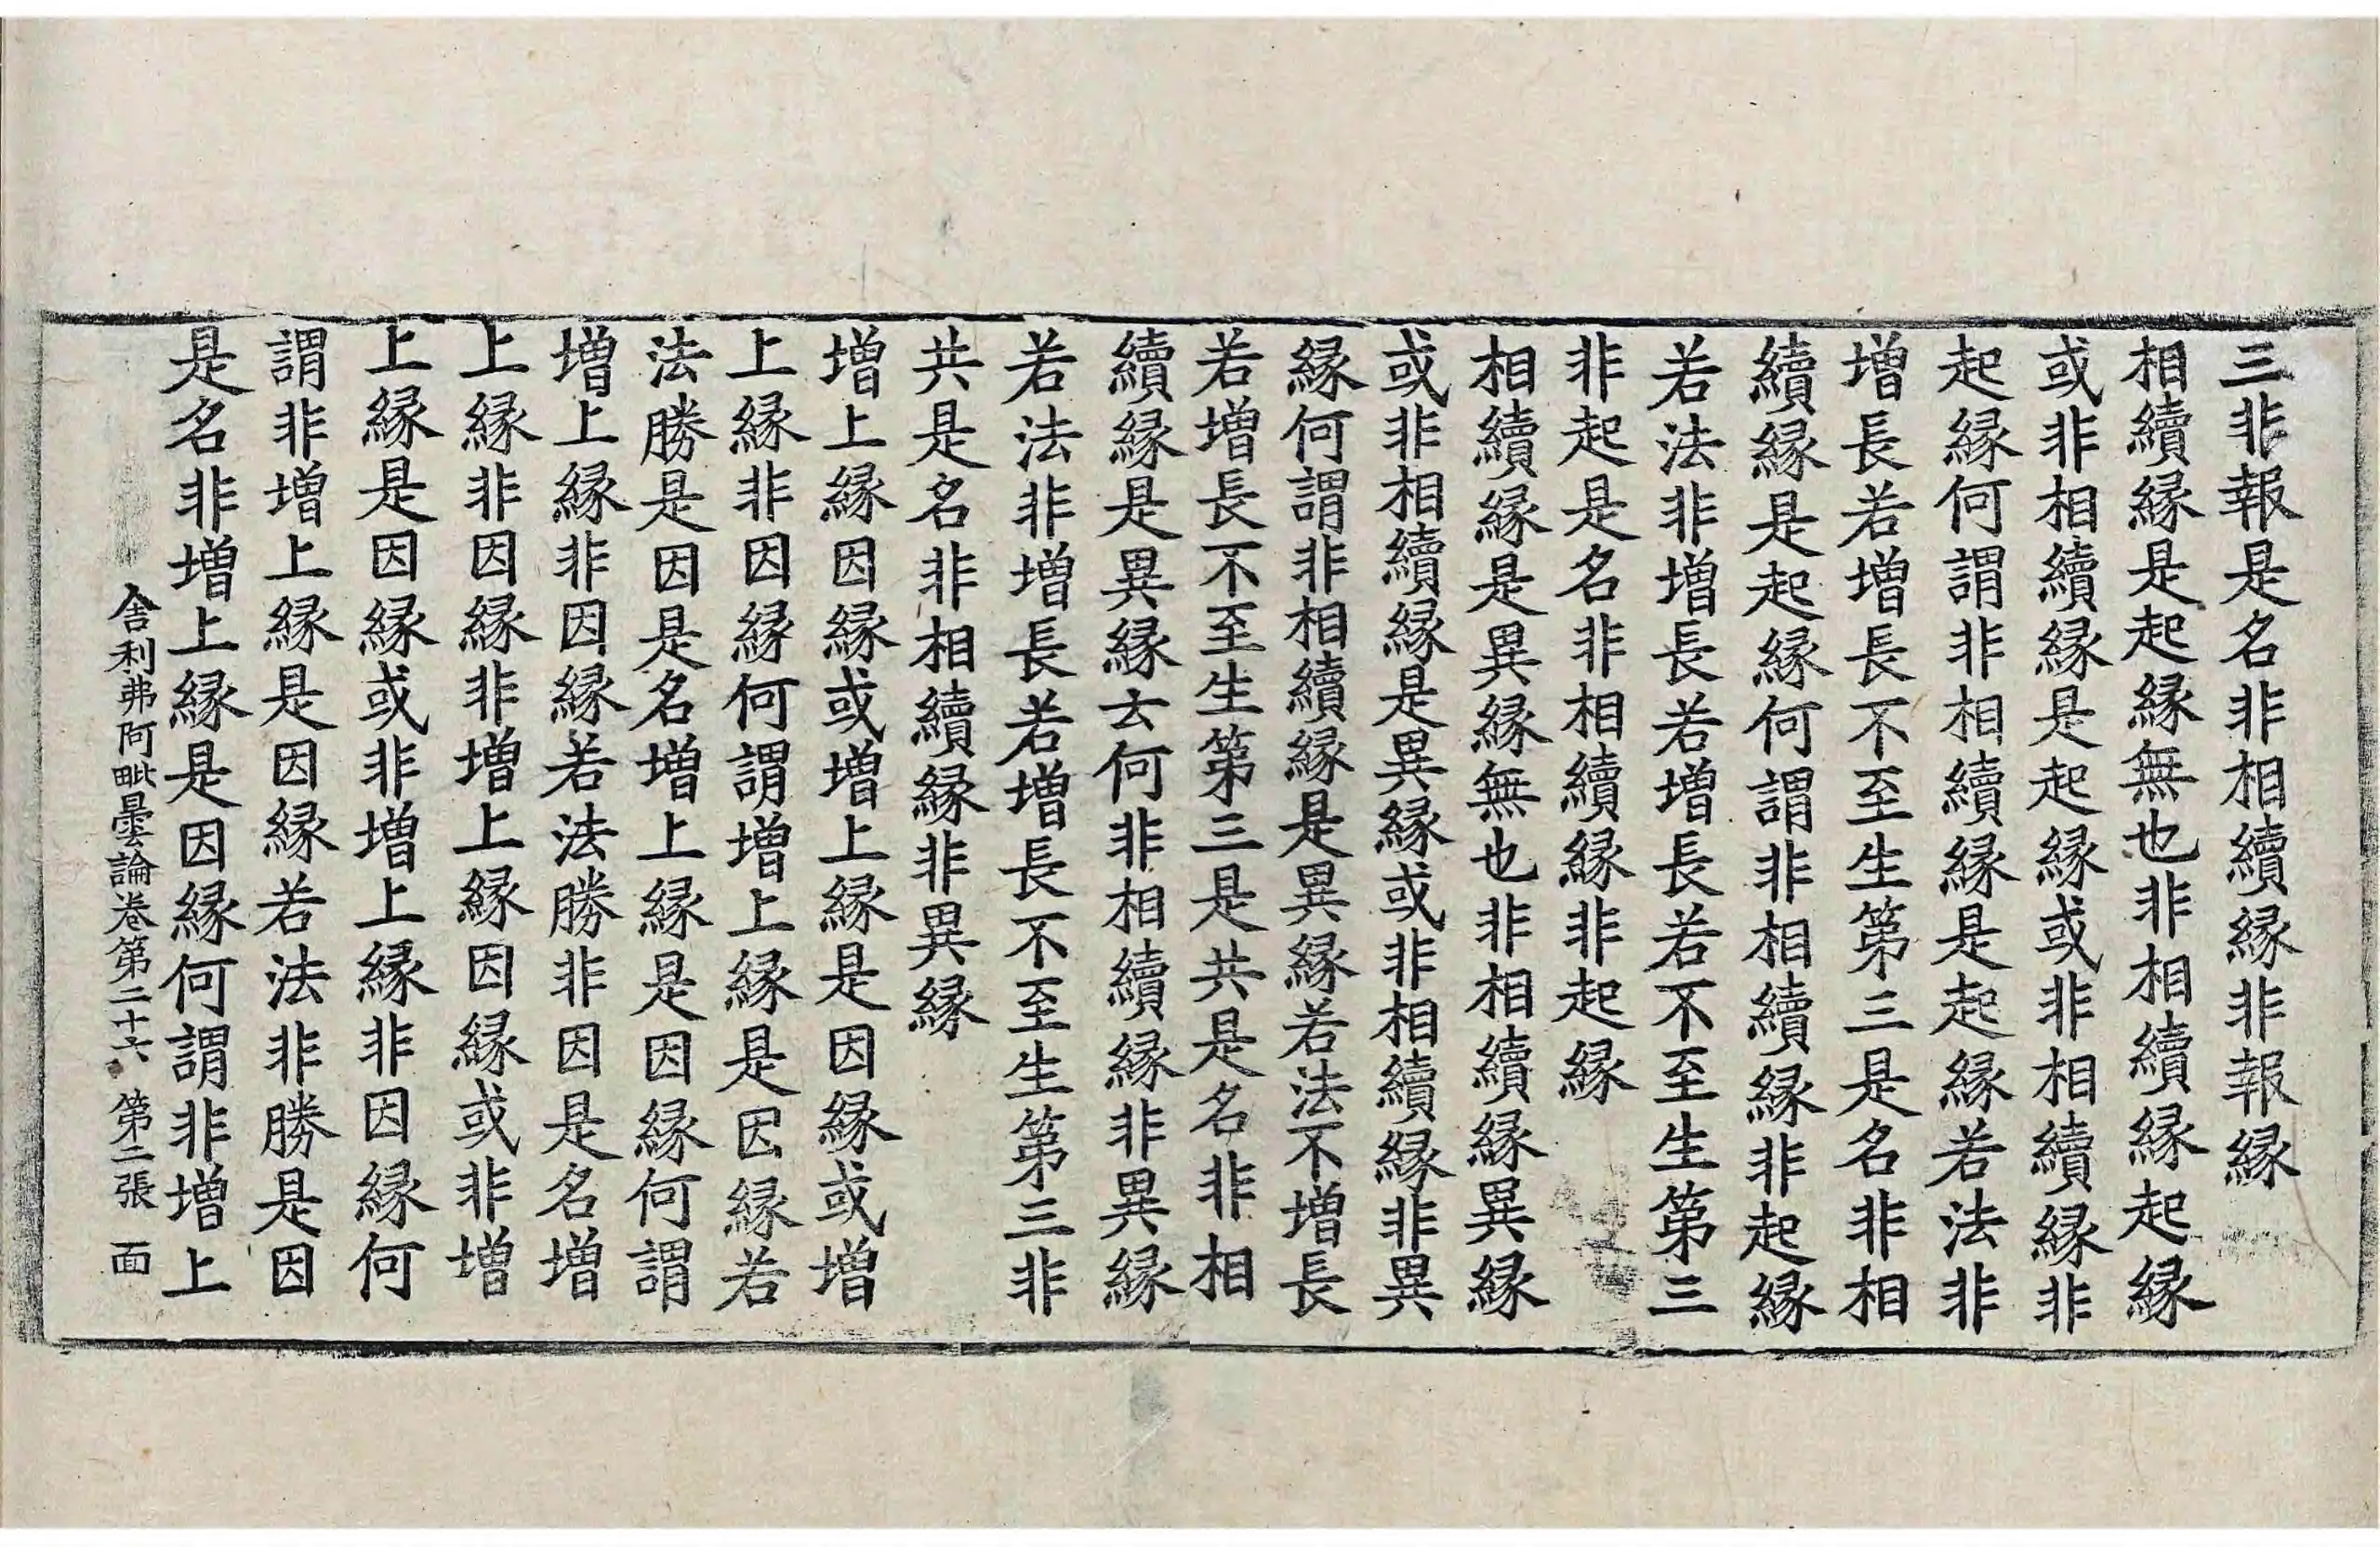 三非報是名非相續縁非報縁
相續縁是起縁無也非相續縁起縁
或非相續縁是起縁或非相續縁非
起縁何謂非相續縁是起縁若法非
增長若增長不至生第三是名非相
續縁是起縁何謂非相續縁非起縁
若法非增長若增長若不至生第三
非起是名非相續縁非起縁
相續縁是異縁無也非相續縁異縁
或非相續縁是異縁或非相續縁非異
縁何謂非相續縁是異縁若法不增長
若增長不至生第三是共是名非相
續縁是異縁云何非相續縁非異縁
若法非增長若增長不至生第三非
共是名非相續縁非異縁
增上縁因縁或增上縁是因縁或增
上縁非因縁何謂增上縁是因縁若
法勝是因是名增上縁是因縁何謂
增上縁非因縁若法勝非因是名增
上縁非因縁非增上縁因縁或非增
上縁是因縁或非增上縁非因縁何
謂非增上縁是因縁若法非勝是因
是名非增上縁是因縁何謂非增上
舎利弗阿毗曇論卷第二十六 第二張 面